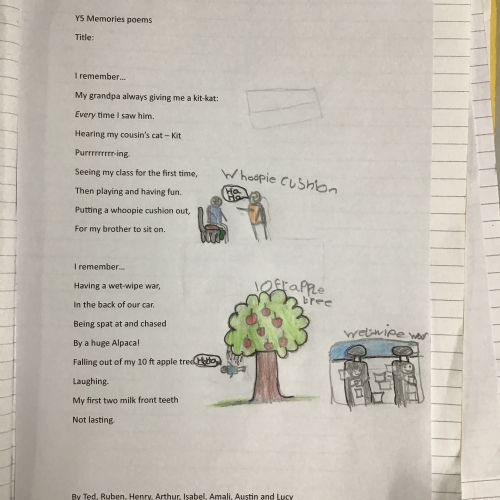 Y5 Memories poems
Title:
I remember...
My grandpa always giving me a kit-kat:
Every time I saw him.
Hearing my cousin's cat – Kit
Purrrrrrrrr-ing.
Seeing my class for the first time,
Whoopie cushion
Then playing and having fun.
Ha
Ha
Putting a whoopie cushion out,
For my brother to sit on.
I remember...
Having a wet-wipe war,
10ft apple
tree
In the back of our car.
Being spat at and chased
wet-wipe war
By a huge Alpaca!
Falling out of my 10 ft apple tree
Laughing.
My first two milk front teeth
Not lasting.
By Ted, Ruben, Henry, Arthur, Isabel, Amali, Austin and Lucy